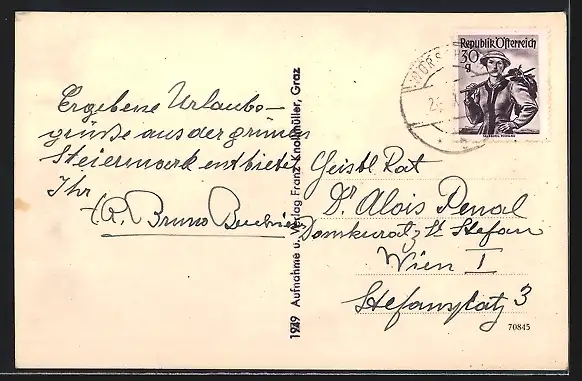 Ergebene Urlaubs-
grüße aus der grünen
Steiermark entbietet
Ihr
Bruno
Geistl. Rat
Dr Alois Penal
Domkurat z. St Stefan
Wien I
Stefansplatz 3
1949 Aufnahme u. Verlag Franz Knollmüller, Graz
70845
Republik Österreich
30
g
WÖRSCH